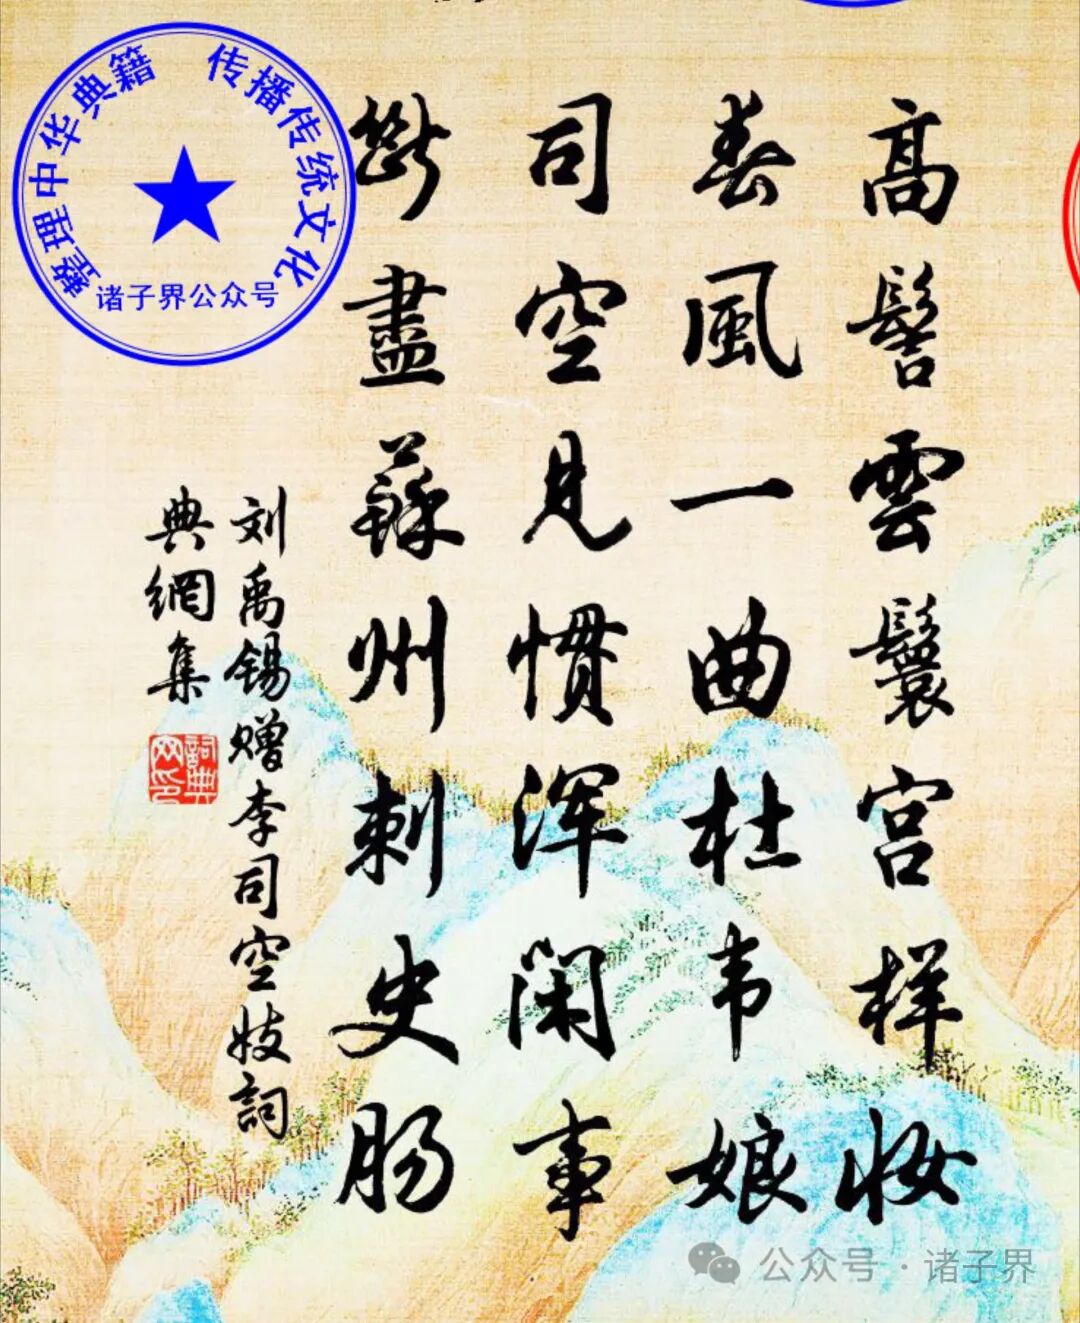 高髻雲鬟宫样妆
春風一曲杜韦娘
司空見慣浑闲事
斷盡蘇州刺史肠
刘禹锡赠李司空妓詞
典網集
詞典网印
整理中华典籍 传播传统文化
诸子界公众号
公众号·诸子界